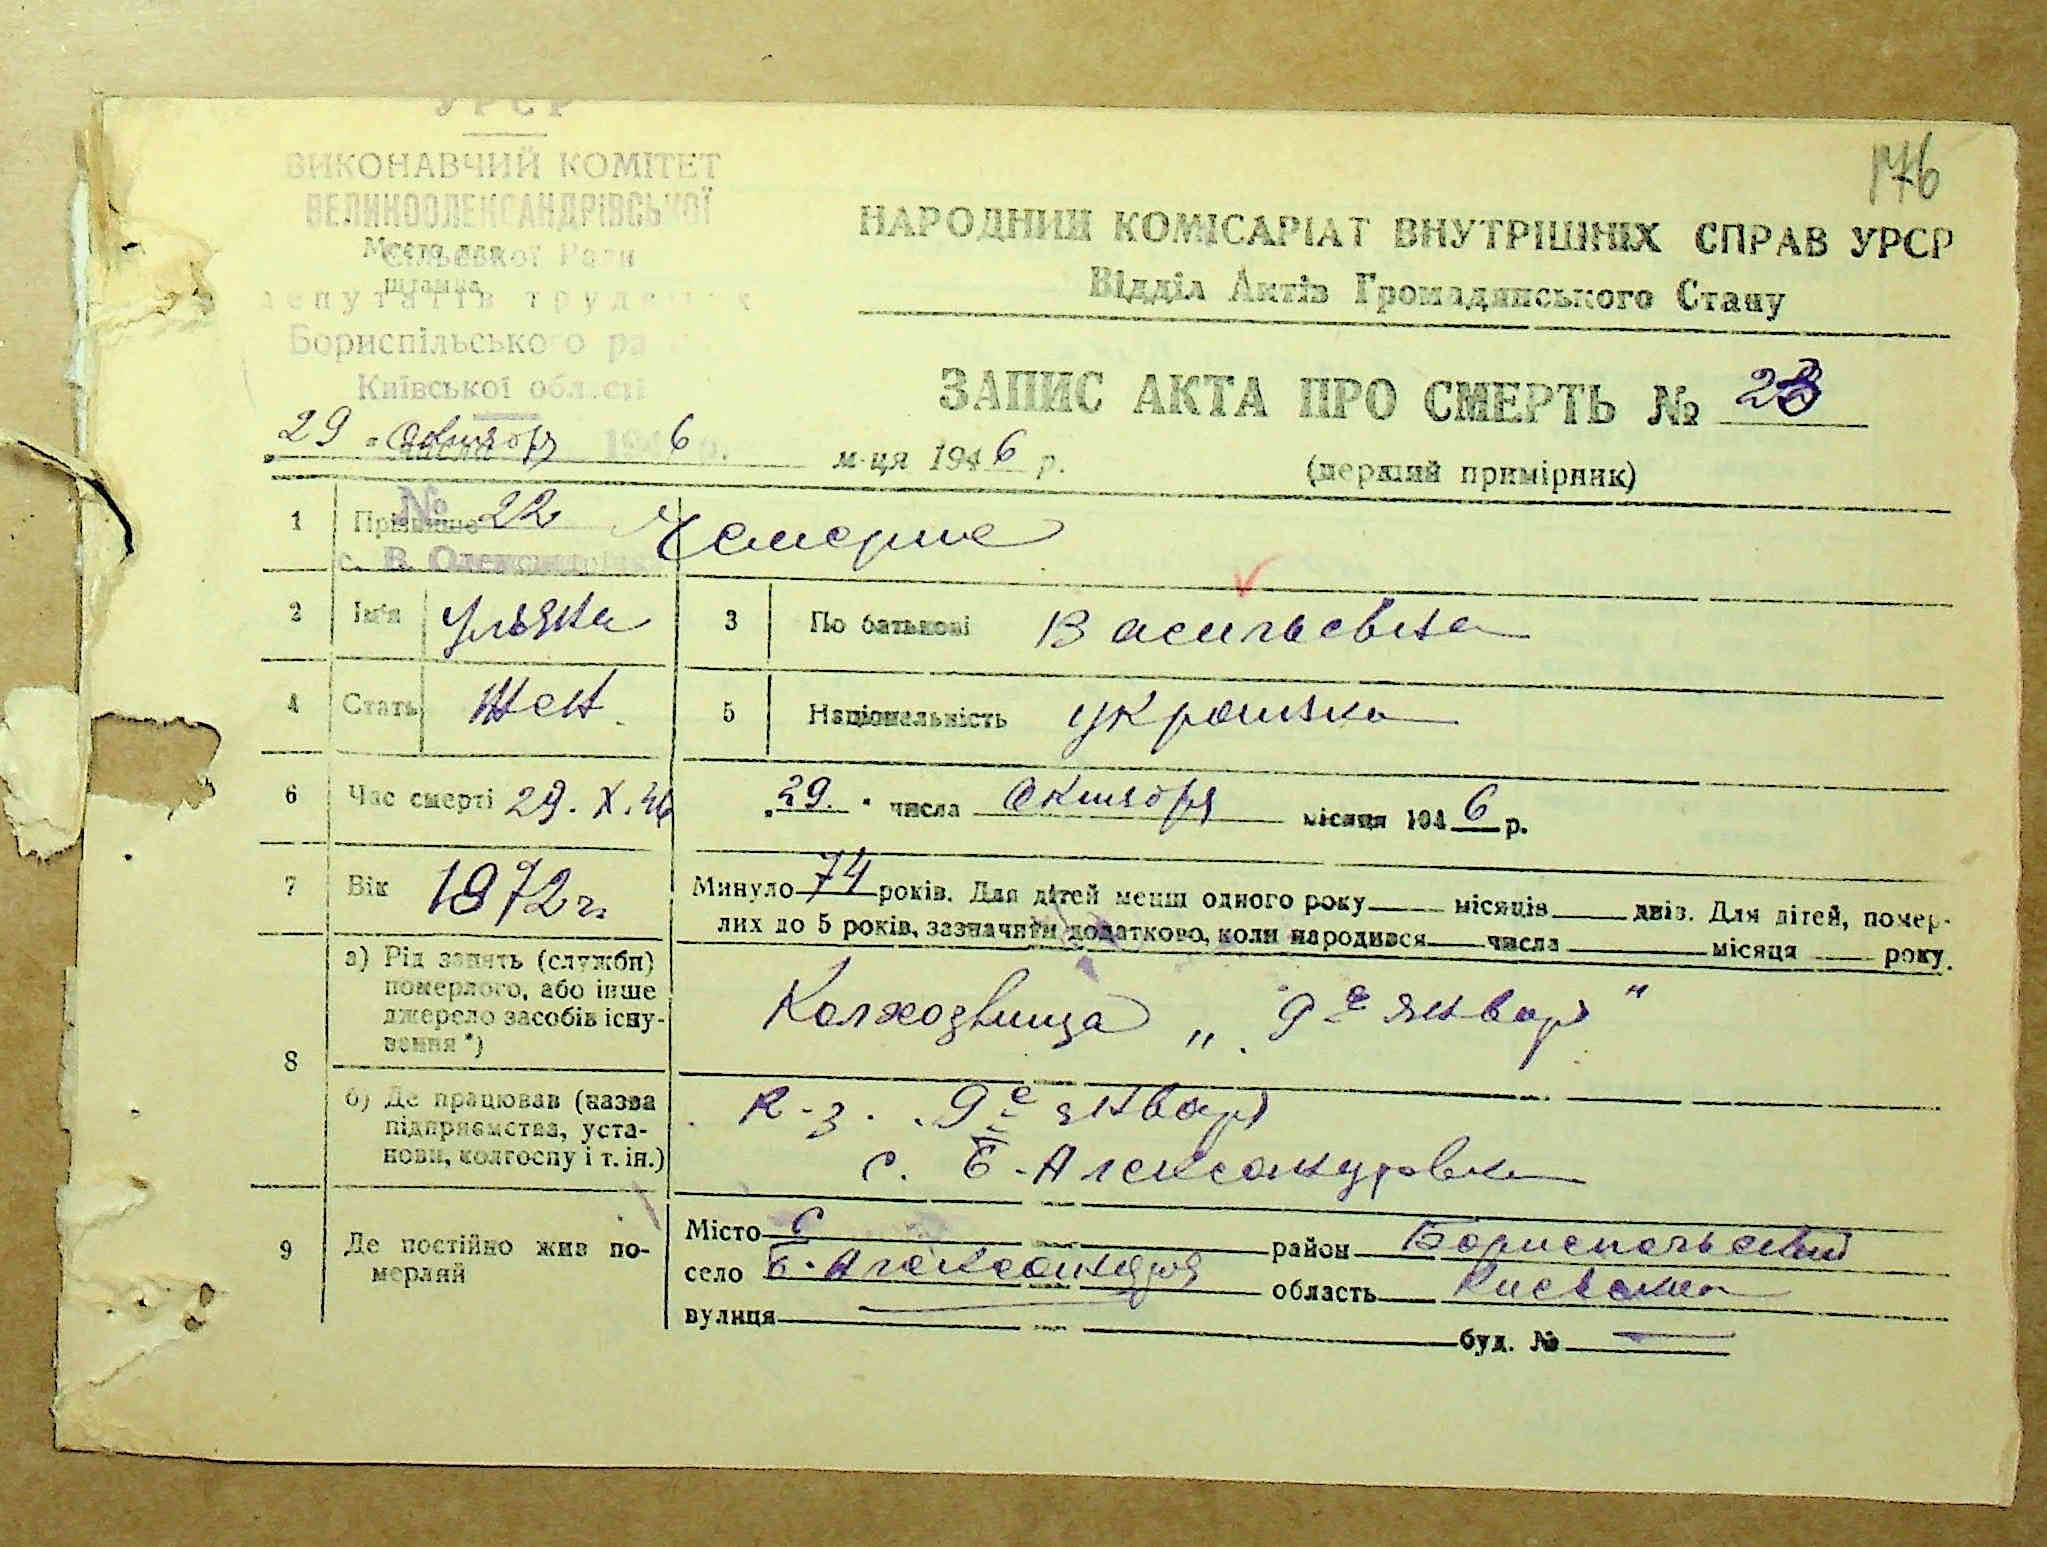 УРСР
ВИКОНАВЧИЙ КОМІТЕТ
ВЕЛИКООЛЕКСАНДРІВСЬКОЇ
Сільської Ради
депутатів трудящих
Бориспільського
Київської області
Место для
штампа
176
НАРОДНИЙ КОМІСАРІАТ ВНУТРІШНІХ СПРАВ УРСР
Відділ Актів Громадянського Стану
ЗАПИС АКТА ПРО СМЕРТЬ №
(перший примірник)
29 " октября 1946 р. м-ця 1946 р.
№ 22
с. В. Олександрівка
1 Прізвище
2 Ім'я Ульяна 3 По батькові Васильевна
4 Стать жен. 5 Національність украинка
6 Час смерті 29. X. 46 "29." числа октября місяця 1946 р.
7 Вік 1872 г. Минуло 74 років. Для дітей менш одного року місяців днів. Для дітей, помер-
лих до 5 років, зазначити додатково, коли народився числа місяця року.
8 а) Рід занять (служби)
померлого, або інше
джерело засобів існу-
вання *)
Колхозница „ 9е января "
б) Де працював (назва
підприємства, уста-
нови, колгоспу і т. ін.)
к-з. 9е январ
с. Б-Александровка
9 Де постійно жив по-
мерлий
Місто с район Бориспольский
село Б. Александров область Киевская
вулиця буд. №